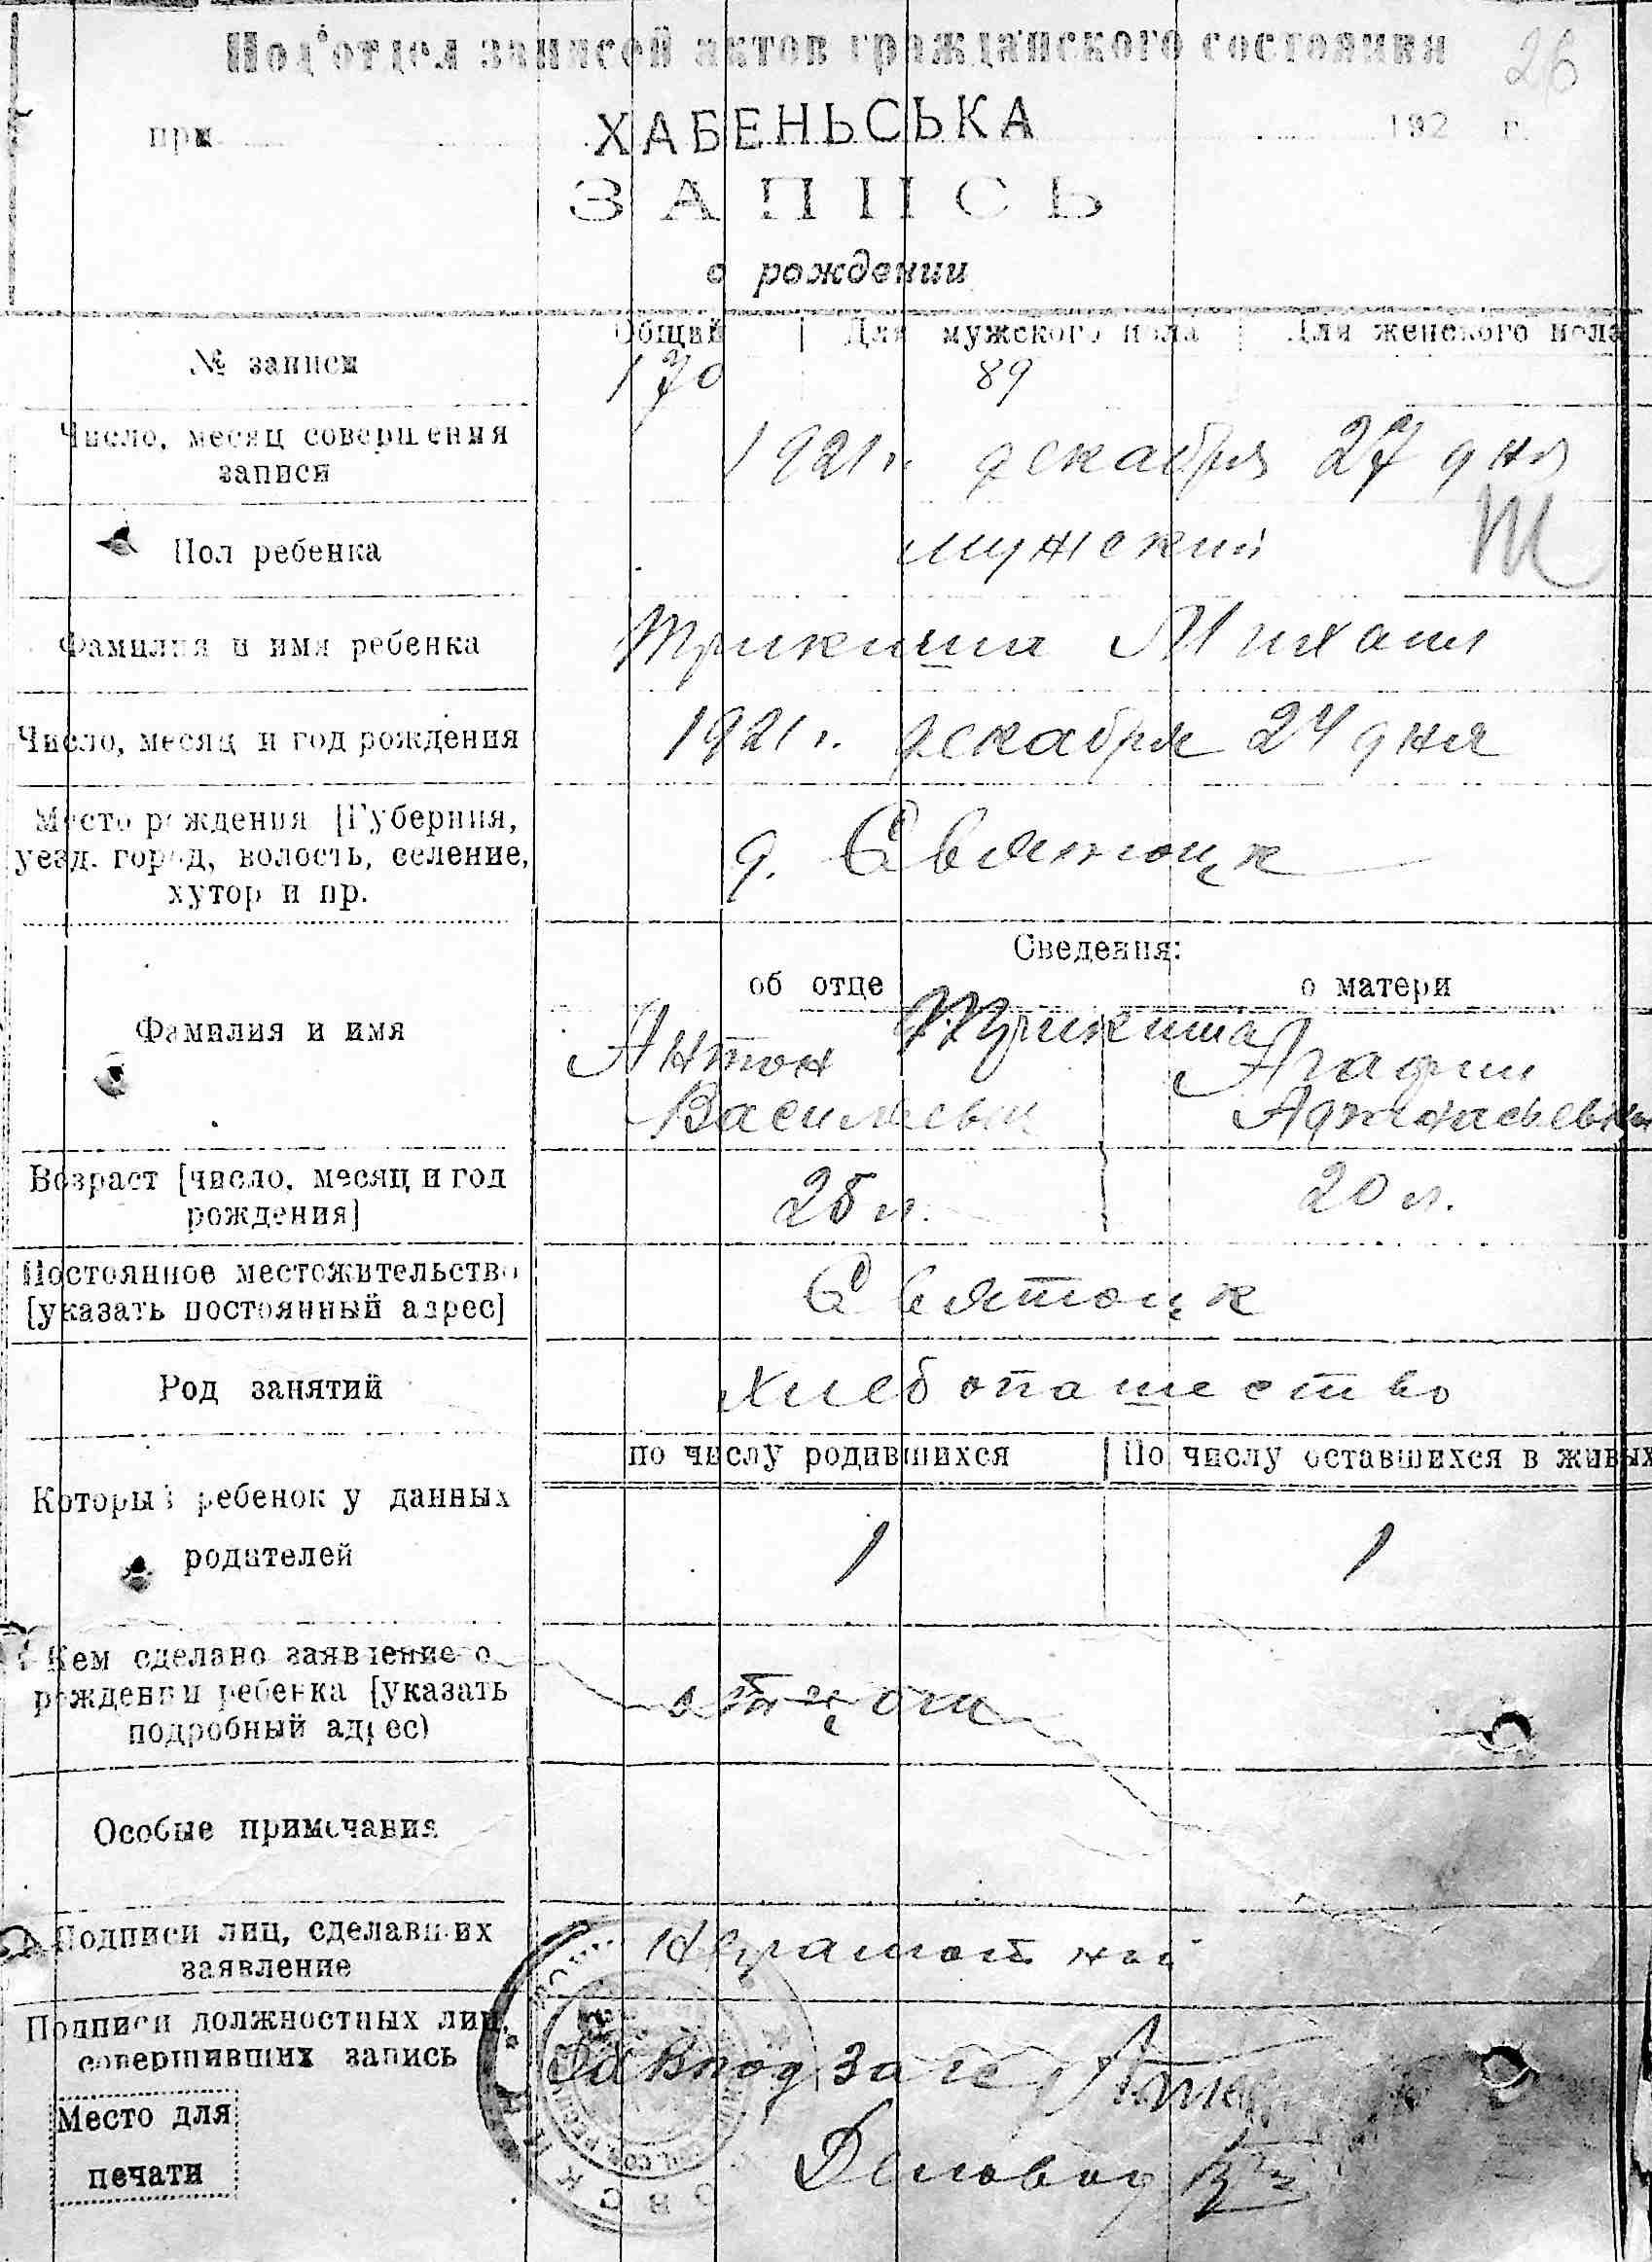 Под'отдел записей актов гражданского состояния
26
при ХАБЕНЬСЬКА 192 г.
ЗАПИСЬ
о рождении
Общий | Для мужского пола | Для женского пола
№ записи 170 89
Число, месяц совершения записи 1921 г. декабря 27 дня
Пол ребенка мужский
Фамилия и имя ребенка Трикиша Михаил
Число, месяц и год рождения 1921 г. декабря 24 дня
Место рождения [Губерния, уезд. город, волость, селение, хутор и пр. д. Святоцк
Сведения:
об отце о матери
Фамилия и имя Трикиша
Антон Агафия
Васильевич Афанасьевна
Возраст [число, месяц и год рождения] 25 л. 20 л.
Постоянное местожительство [указать постоянный адрес] Святоцк
Род занятий хлебопашество
по числу родившихся | По числу оставшихся в живых
Который ребенок у данных родителей 1 1
Кем сделано заявление о рождении ребенка [указать подробный адрес) отцом
Особые примечания
Подписи лиц, сделавших заявление Неграмотный
Подписи должностных лиц, совершивших запись Завподзаг
Деловод
Место для
печати